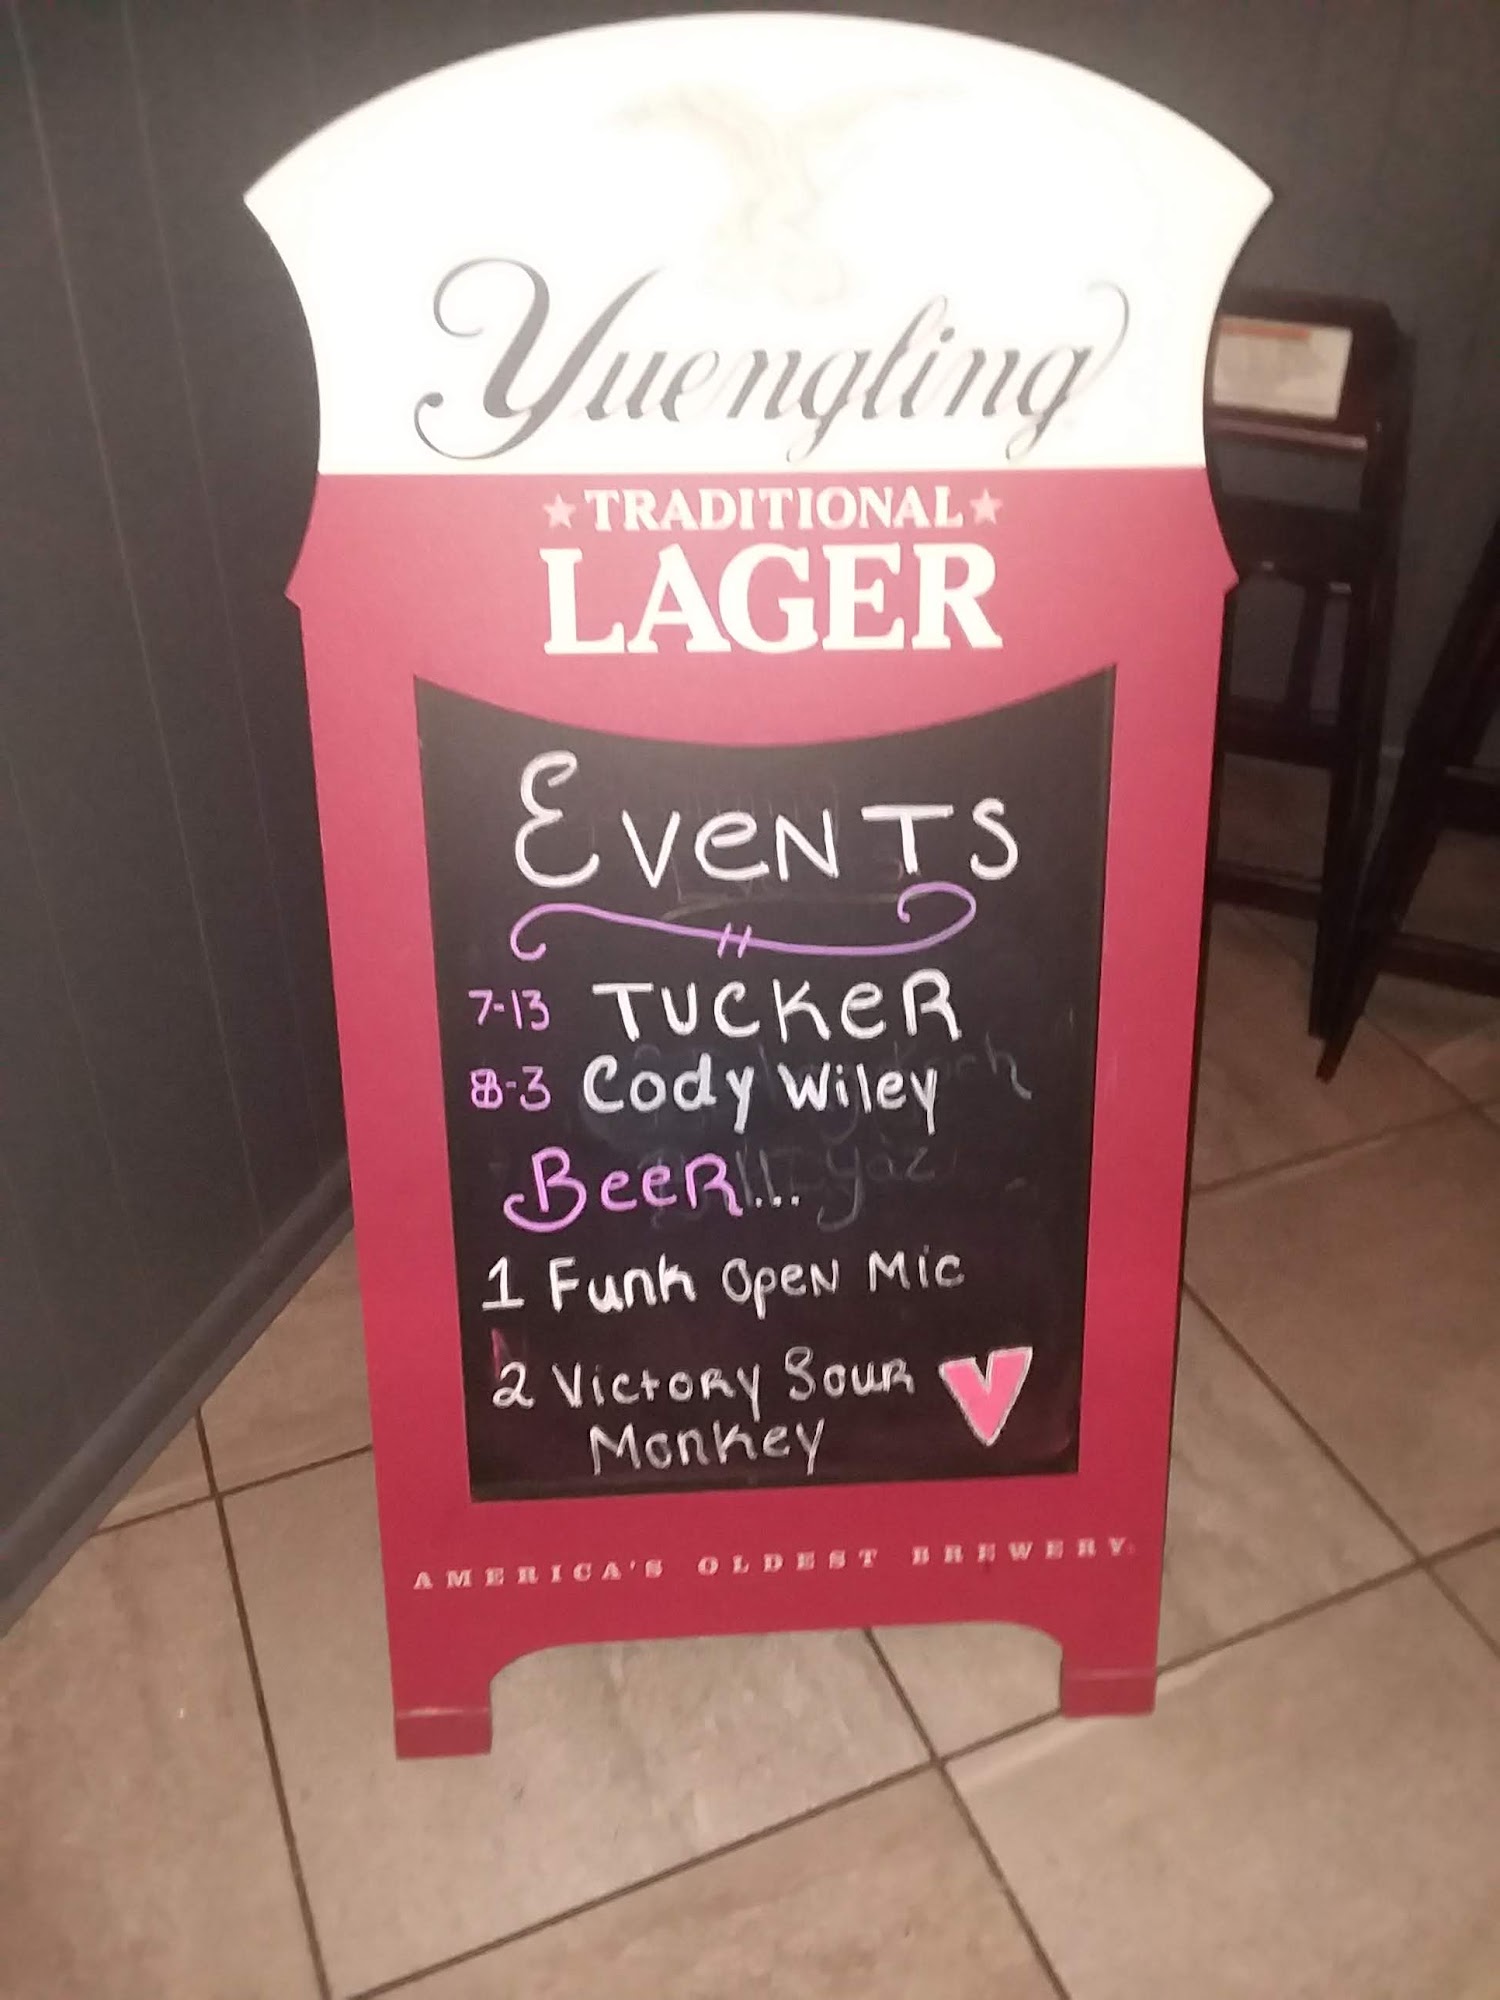 Yuengling
TRADITIONAL
LAGER
EVENTS
7-13 TUCKER
8-3 Cody Wiley
BEER...
1 Funk Open Mic
2 Victory Sour
Monkey
AMERICA'S OLDEST BREWERY